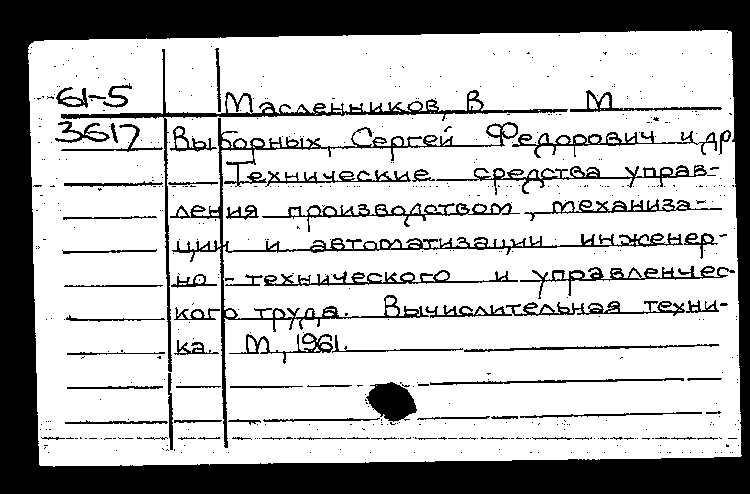 61-5 Масленников, В М
3617 Выборных, Сергей Федорович и др.
Технические средства управ-
ления производством, механиза-
ции и автоматизации инженер-
но-технического и управленчес-
кого труда. Вычислительная техни-
ка. М., 1961.